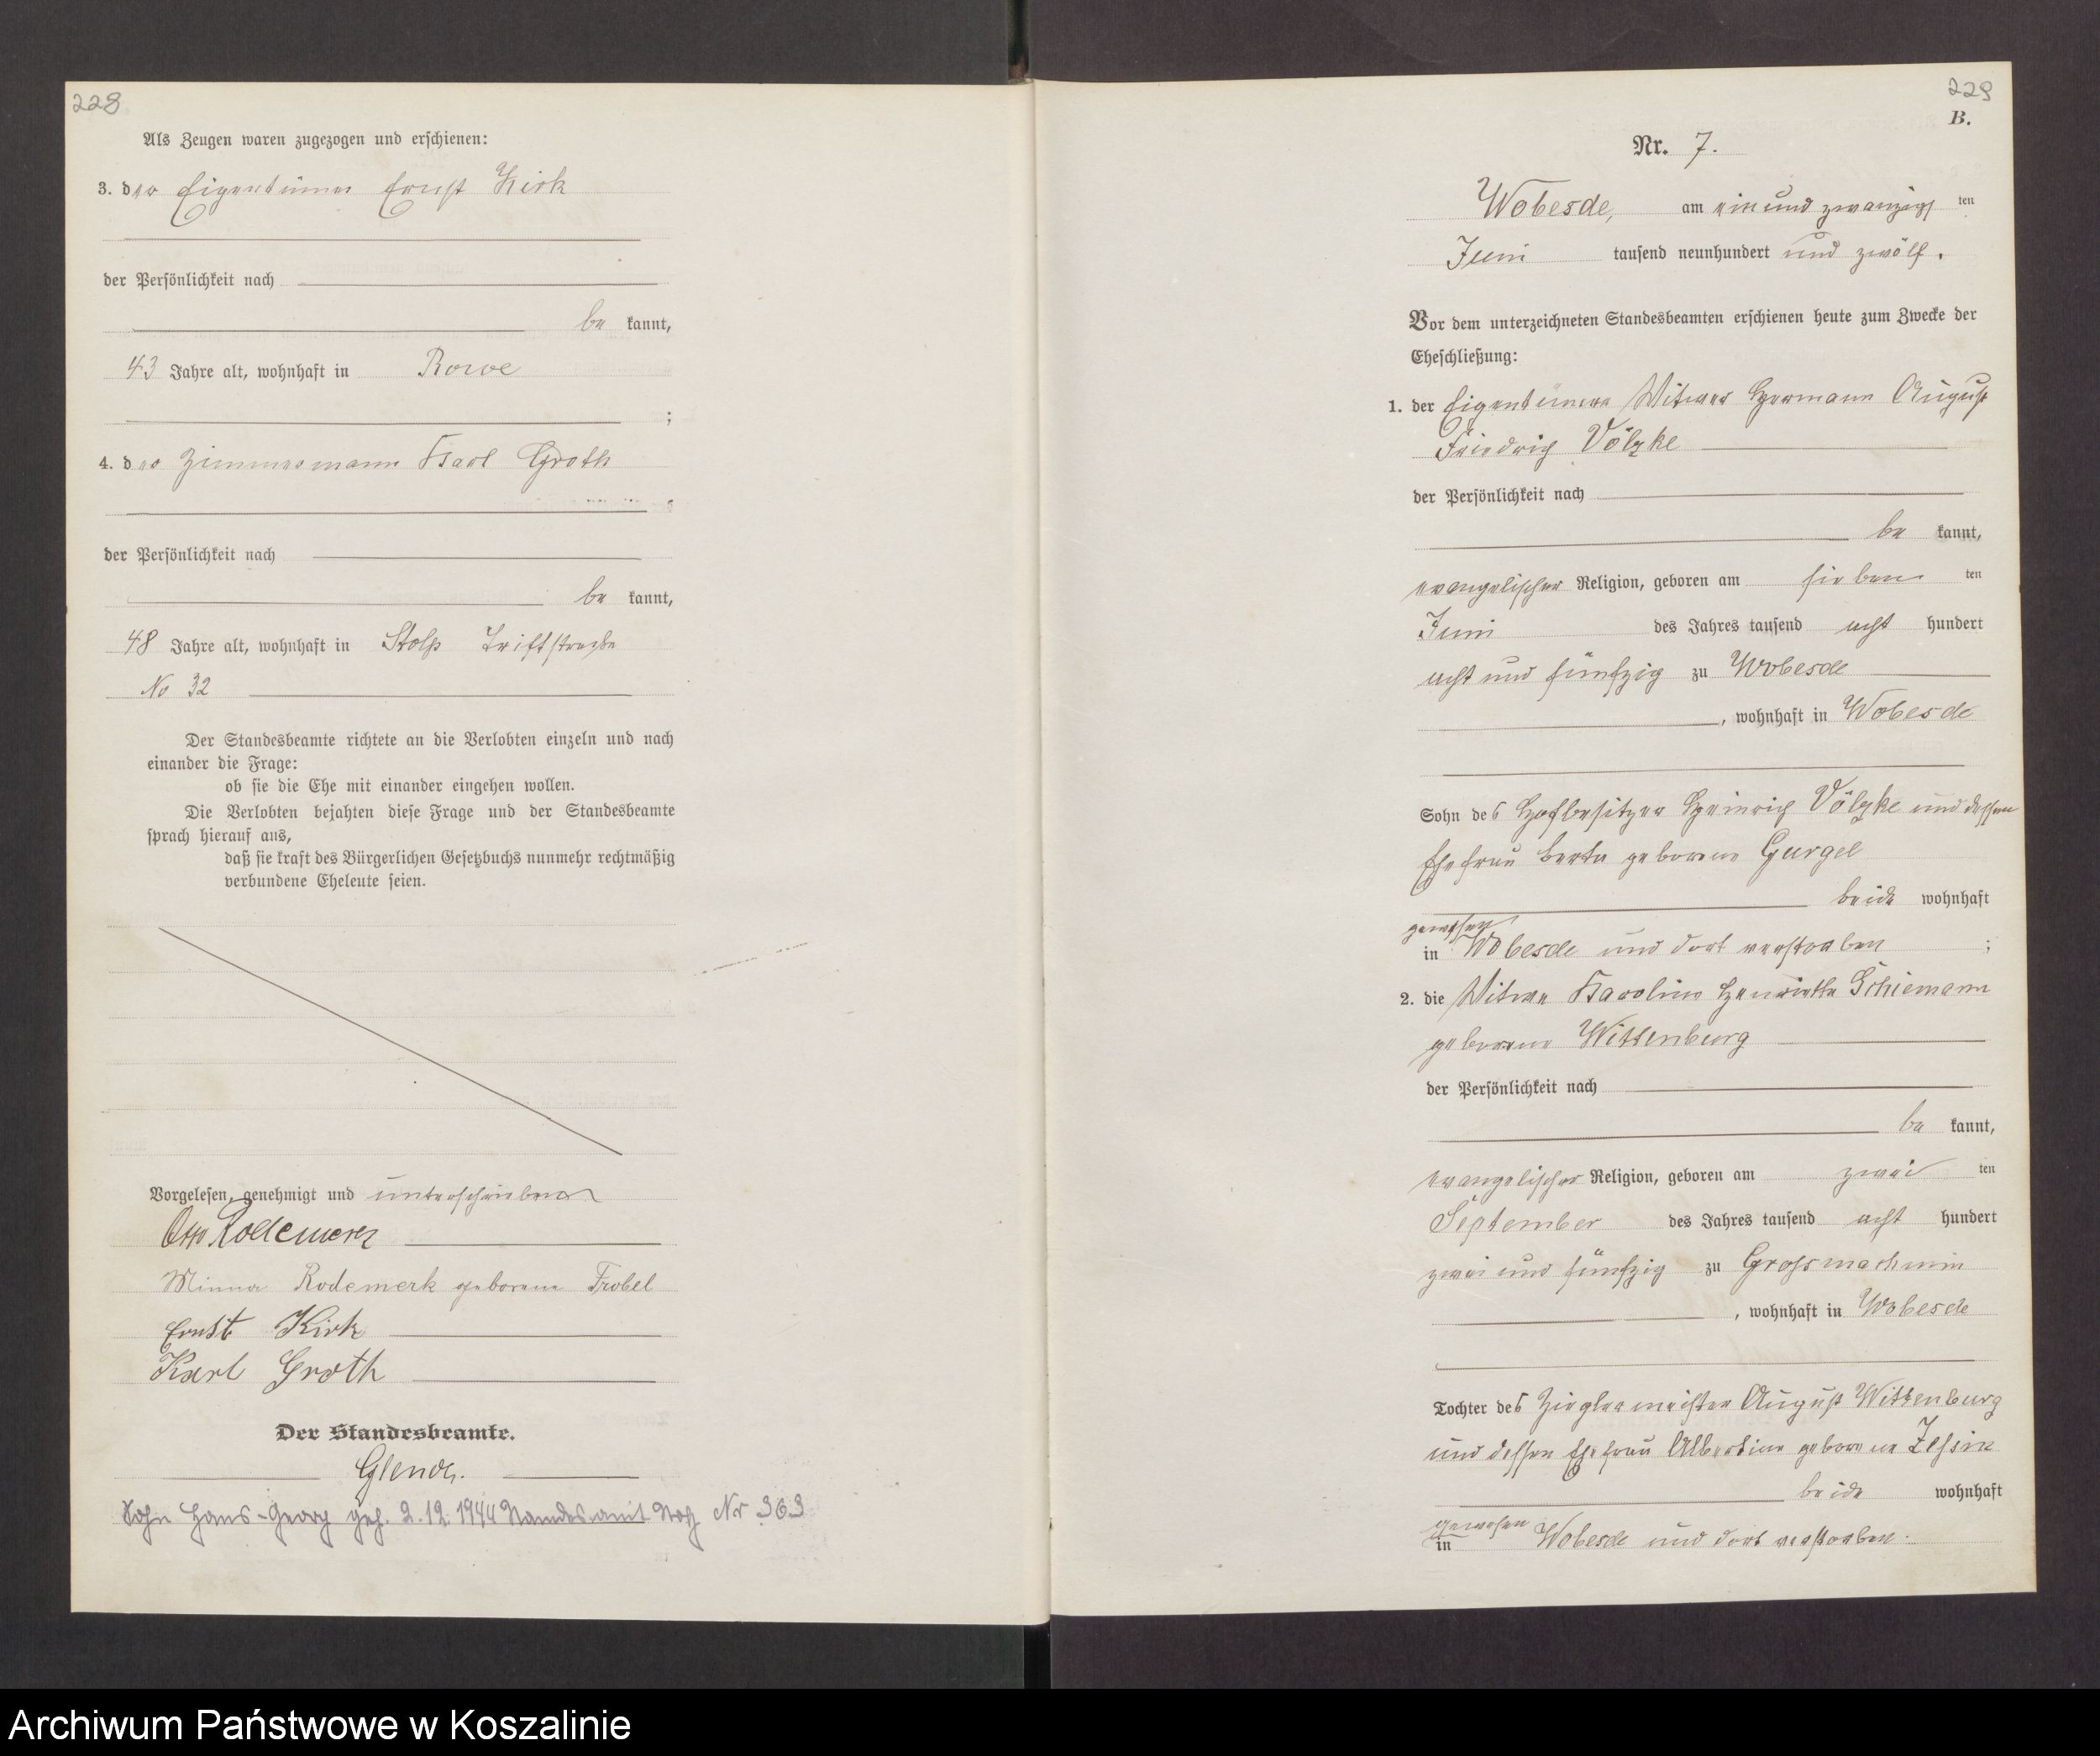 228
Als Zeugen waren zugezogen und erschienen:
3. der Eigentümer Ernst Kirk
der Persönlichkeit nach
be kannt,
43 Jahre alt, wohnhaft in Rowe
;
4. der Zimmermann Karl Groth
der Persönlichkeit nach
be kannt,
48 Jahre alt, wohnhaft in Stolp Triftstraße
No 32
Der Standesbeamte richtete an die Verlobten einzeln und nach
einander die Frage:
ob sie die Ehe mit einander eingehen wollen.
Die Verlobten bejahten diese Frage und der Standesbeamte
sprach hierauf aus,
daß sie kraft des Bürgerlichen Gesetzbuchs nunmehr rechtmäßig
verbundene Eheleute seien.
Vorgelesen, genehmigt und unterschrieben
Otto Rodemerk
Minna Rodemerk geborene Frobel
Ernst Kirk
Karl Groth
Der Standesbeamte.
Sohn Hans-Georg geb. 2.12.1944 Standesamt Nr 363
229
B.
Nr. 7.
Wobesde, am ein und zwanzigs ten
Juni tausend neunhundert und zwölf.
Vor dem unterzeichneten Standesbeamten erschienen heute zum Zwecke der
Eheschließung:
1. der Eigentümer Witwer Hermann August
Friedrich Völzke
der Persönlichkeit nach
be kannt,
evangelischer Religion, geboren am sieben ten
Juni des Jahres tausend acht hundert
acht und fünfzig zu Wobesde
, wohnhaft in Wobesde
Sohn des Hofbesitzer Heinrich Völzke und dessen
Ehefrau Berta geborene Gurgel
beide wohnhaft
gewesen
in Wobesde und dort verstorben ;
2. die Witwe Karoline Henriette Schiemann
geborene Wittenburg
der Persönlichkeit nach
be kannt,
evangelischer Religion, geboren am zwei ten
September des Jahres tausend acht hundert
zwei und fünfzig zu Grossmachmin
, wohnhaft in Wobesde
Tochter des Zieglermeister August Wittenburg
und dessen Ehefrau Albertine geborene Zessin
beide wohnhaft
gewesen
in Wobesde und dort verstorben.
Archiwum Państwowe w Koszalinie